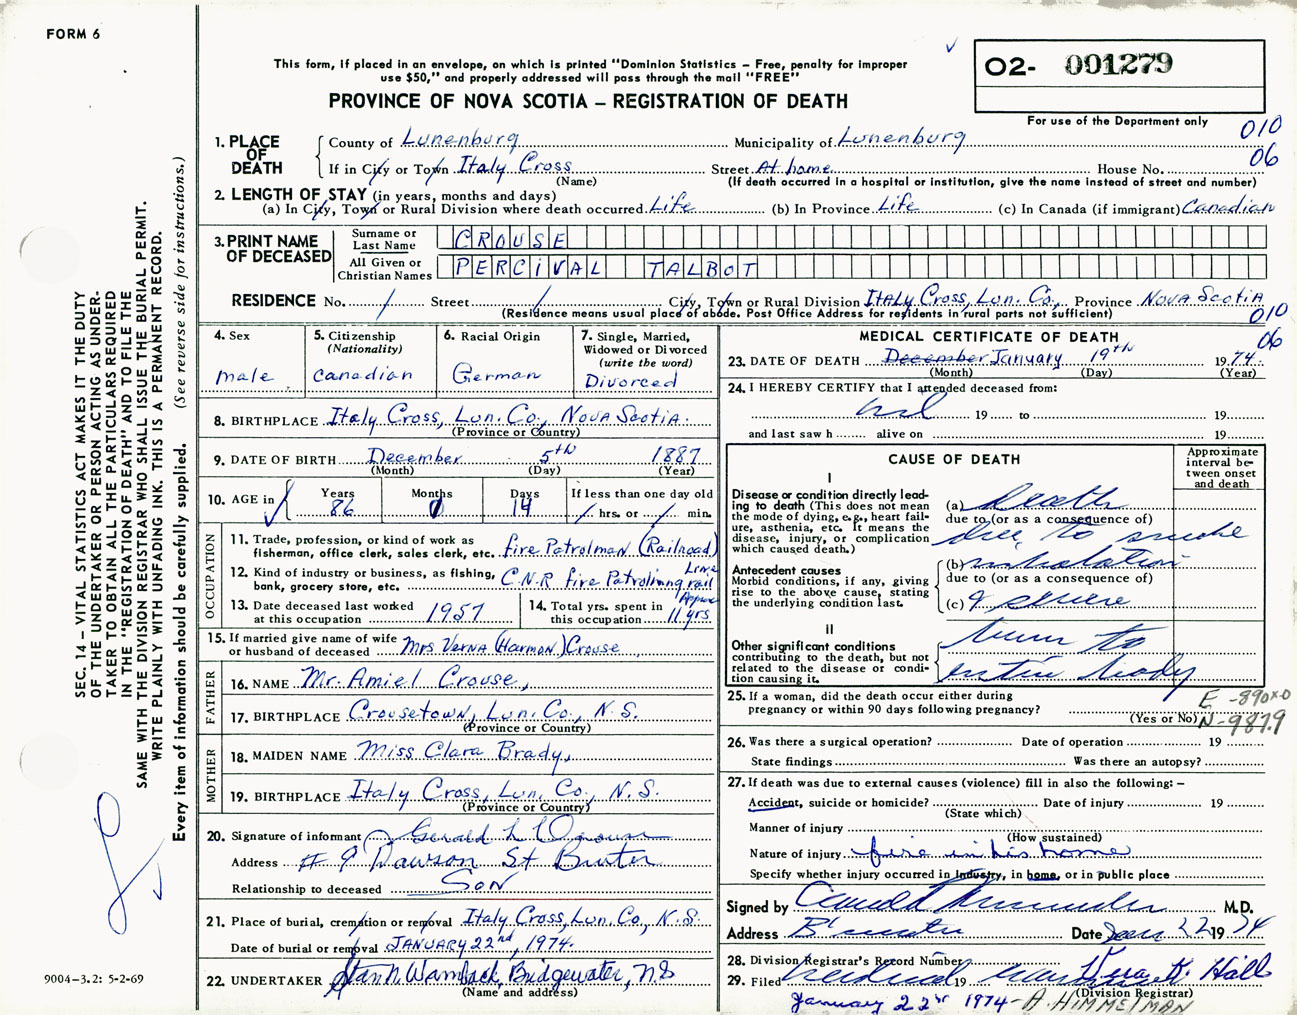 FORM 6
This form, if placed in an envelope, on which is printed "Dominion Statistics - Free, penalty for improper
use $50," and properly addressed will pass through the mail "FREE"
PROVINCE OF NOVA SCOTIA – REGISTRATION OF DEATH
02- 001279
For use of the Department only
010
06
1. PLACE OF DEATH
County of Lunenburg Municipality of Lunenburg
If in City or Town Italy Cross Street At home House No.
(Name) (If death occurred in a hospital or institution, give the name instead of street and number)
2. LENGTH OF STAY (in years, months and days)
(a) In City, Town or Rural Division where death occurred Life (b) In Province Life (c) In Canada (if immigrant) Canadian
3. PRINT NAME OF DECEASED
Surname or Last Name CROUSE
All Given or Christian Names PERCIVAL TALBOT
RESIDENCE No. / Street / City, Town or Rural Division Italy Cross, Lun. Co., Province Nova Scotia
(Residence means usual place of abode. Post Office Address for residents in rural parts not sufficient)
010
06
4. Sex
male
5. Citizenship (Nationality)
Canadian
6. Racial Origin
German
7. Single, Married, Widowed or Divorced (write the word)
Divorced
8. BIRTHPLACE Italy Cross, Lun. Co., Nova Scotia.
(Province or Country)
9. DATE OF BIRTH December 5th 1887
(Month) (Day) (Year)
10. AGE in Years Months Days If less than one day old
86 1 14 / hrs. or / min.
OCCUPATION
11. Trade, profession, or kind of work as
fisherman, office clerk, sales clerk, etc. Fire Patrolman (Railroad)
12. Kind of industry or business, as fishing,
bank, grocery store, etc. C.N.R Fire Patroling rail Line
13. Date deceased last worked
at this occupation 1957
14. Total yrs. spent in
this occupation Approx 11 yrs.
15. If married give name of wife
or husband of deceased Mrs Verna (Harmon) Crouse
FATHER
16. NAME Mr. Amiel Crouse,
17. BIRTHPLACE Crousetown, Lun. Co., N.S.
(Province or Country)
MOTHER
18. MAIDEN NAME Miss Clara Brady,
19. BIRTHPLACE Italy Cross, Lun. Co., N.S.
(Province or Country)
20. Signature of informant Gerald L
Address # 9 Dawson St
Relationship to deceased Son
21. Place of burial, cremation or removal Italy Cross, Lun. Co., N.S.
Date of burial or removal JANUARY 22nd, 1974.
22. UNDERTAKER Stan N. Wamback, Bridgewater, N.S
(Name and address)
MEDICAL CERTIFICATE OF DEATH
23. DATE OF DEATH December January 19th 1974
(Month) (Day) (Year)
24. I HEREBY CERTIFY that I attended deceased from:
nil 19 to 19
and last saw h alive on 19
CAUSE OF DEATH
Approximate interval between onset and death
I
Disease or condition directly leading to death (This does not mean the mode of dying, e.g., heart failure, asthenia, etc. It means the disease, injury, or complication which caused death.)
(a) Death
due to (or as a consequence of)
due to smoke
(b) inhalation
due to (or as a consequence of)
Antecedent causes
Morbid conditions, if any, giving rise to the above cause, stating the underlying condition last.
(c) & severe
II
Other significant conditions
contributing to the death, but not related to the disease or condition causing it.
burn to
entire body
25. If a woman, did the death occur either during
pregnancy or within 90 days following pregnancy?
(Yes or No)
E -890x0
N-987.9
26. Was there a surgical operation? Date of operation 19
State findings Was there an autopsy?
27. If death was due to external causes (violence) fill in also the following: –
Accident, suicide or homicide? Date of injury 19
(State which)
Manner of injury
(How sustained)
Nature of injury fire in his home
Specify whether injury occurred in industry, in home, or in public place
Signed by M.D.
Address B'water Date Jan 22 1974
28. Division Registrar's Record Number
29. Filed 19 Vera K. Hall
(Division Registrar)
January 22nd 1974 - A. HIMMELMAN
SEC. 14 – VITAL STATISTICS ACT MAKES IT THE DUTY
OF THE UNDERTAKER OR PERSON ACTING AS UNDER-
TAKER TO OBTAIN ALL THE PARTICULARS REQUIRED
IN THE "REGISTRATION OF DEATH" AND TO FILE THE
SAME WITH THE DIVISION REGISTRAR WHO SHALL ISSUE THE BURIAL PERMIT.
WRITE PLAINLY WITH UNFADING INK. THIS IS A PERMANENT RECORD.
Every item of Information should be carefully supplied. (See reverse side for instructions.)
9004-3.2: 5-2-69